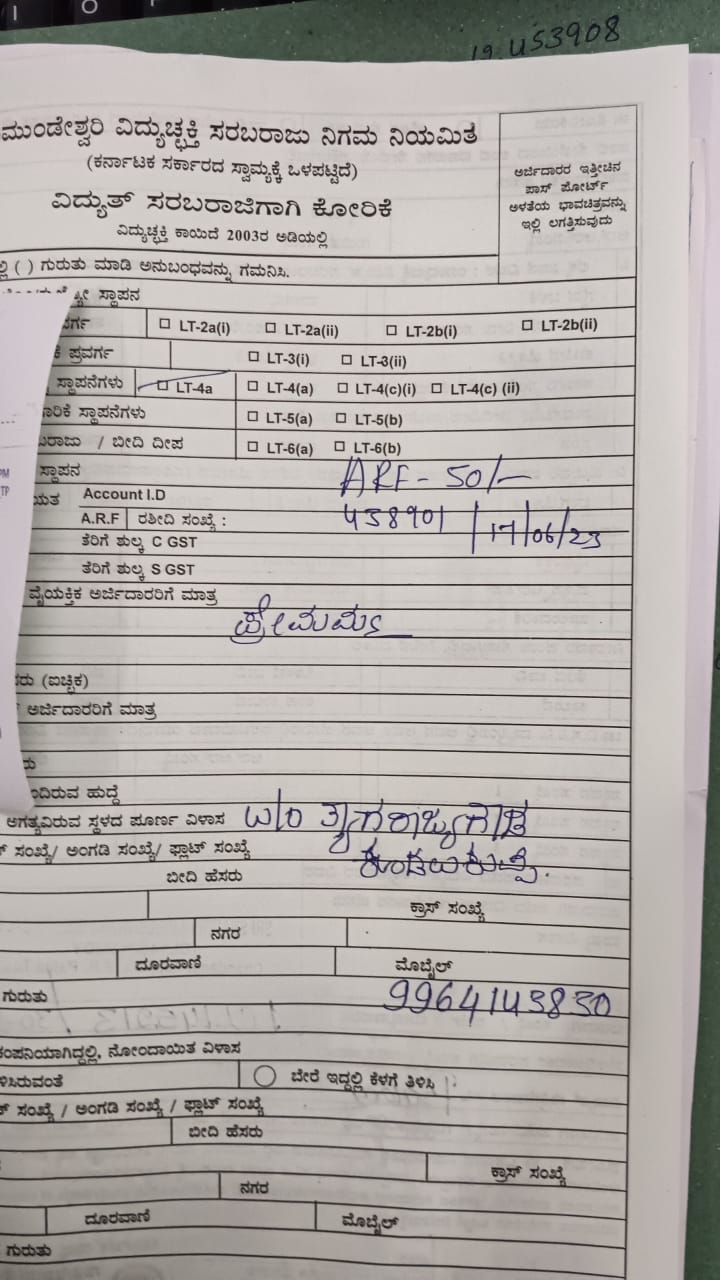 19.453908
ಮುಂಡೇಶ್ವರಿ ವಿದ್ಯುಚ್ಛಕ್ತಿ ಸರಬರಾಜು ನಿಗಮ ನಿಯಮಿತ
(ಕರ್ನಾಟಕ ಸರ್ಕಾರದ ಸ್ವಾಮ್ಯಕ್ಕೆ ಒಳಪಟ್ಟಿದೆ)
ವಿದ್ಯುತ್ ಸರಬರಾಜಿಗಾಗಿ ಕೋರಿಕೆ
ವಿದ್ಯುಚ್ಛಕ್ತಿ ಕಾಯಿದೆ 2003ರ ಅಡಿಯಲ್ಲಿ
ಅರ್ಜಿದಾರರ ಇತ್ತೀಚಿನ
ಪಾಸ್ ಪೋರ್ಟ್
ಅಳತೆಯ ಭಾವಚಿತ್ರವನ್ನು
ಇಲ್ಲಿ ಲಗತ್ತಿಸುವುದು
ಲ್ಲಿ ( ) ಗುರುತು ಮಾಡಿ ಅನುಬಂಧವನ್ನು ಗಮನಿಸಿ.
ಸ್ಥಾಪನ
ವರ್ಗ □ LT-2a(i) □ LT-2a(ii) □ LT-2b(i) □ LT-2b(ii)
ಕೆ ಪ್ರವರ್ಗ □ LT-3(i) □ LT-3(ii)
ಸ್ಥಾಪನೆಗಳು □ LT-4a □ LT-4(a) □ LT-4(c)(i) □ LT-4(c) (ii)
ಾರಿಕೆ ಸ್ಥಾಪನೆಗಳು □ LT-5(a) □ LT-5(b)
ಬರಾಜು / ಬೀದಿ ದೀಪ □ LT-6(a) □ LT-6(b)
ಸ್ಥಾಪನ ARF - 50/-
ಯತ Account I.D
A.R.F ರಶೀದಿ ಸಂಖ್ಯೆ : 438901 / 17/06/23
ತೆರಿಗೆ ಶುಲ್ಕ C GST
ತೆರಿಗೆ ಶುಲ್ಕ S GST
ವೈಯಕ್ತಿಕ ಅರ್ಜಿದಾರರಿಗೆ ಮಾತ್ರ
ಪ್ರೇಮಮ್ಮ
ರು (ಐಚ್ಛಿಕ)
ಅರ್ಜಿದಾರರಿಗೆ ಮಾತ್ರ
ರು
ಂದಿರುವ ಹುದ್ದೆ
ಅಗತ್ಯವಿರುವ ಸ್ಥಳದ ಪೂರ್ಣ ವಿಳಾಸ W/O ತ್ಯಾಗರಾಜ್ಯಗೌಡ
ಸಂಖ್ಯೆ/ ಅಂಗಡಿ ಸಂಖ್ಯೆ/ ಫ್ಲಾಟ್ ಸಂಖ್ಯೆ
ಬೀದಿ ಹೆಸರು
ಕ್ರಾಸ್ ಸಂಖ್ಯೆ
ನಗರ
ದೂರವಾಣಿ ಮೊಬೈಲ್
ಗುರುತು 9964143830
ಕಂಪನಿಯಾಗಿದ್ದಲ್ಲಿ, ನೋಂದಾಯಿತ ವಿಳಾಸ
ಳಿಸಿರುವಂತೆ ಬೇರೆ ಇದ್ದಲ್ಲಿ ಕೆಳಗೆ ತಿಳಿಸಿ
ಸಂಖ್ಯೆ / ಅಂಗಡಿ ಸಂಖ್ಯೆ / ಫ್ಲಾಟ್ ಸಂಖ್ಯೆ
ಬೀದಿ ಹೆಸರು
ಕ್ರಾಸ್ ಸಂಖ್ಯೆ
ನಗರ
ದೂರವಾಣಿ ಮೊಬೈಲ್
ಗುರುತು